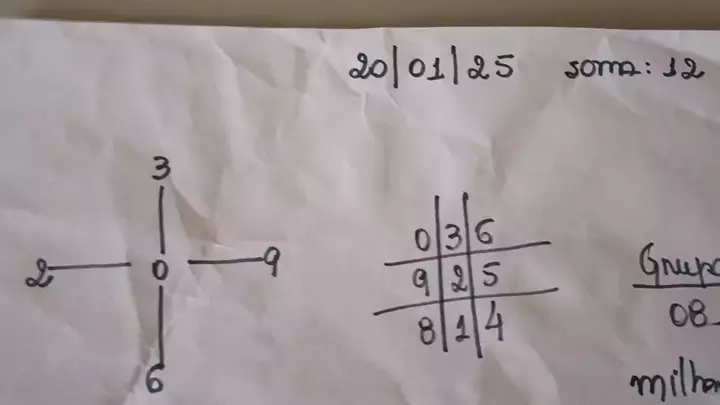 20/01/25 soma: 12
3
2 0 9
6
0 3 6
9 2 5
8 1 4
08